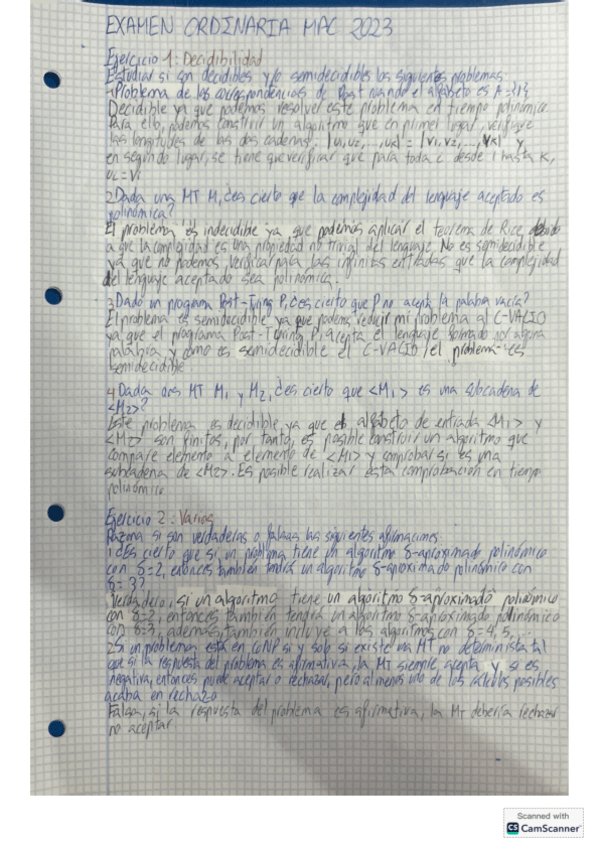 EXAMEN ORDINARIA MAC 2023
Ejercicio 1: Decidibilidad
Estudiar si son decidibles y/o semidecidibles los siguientes problemas
1 Problema de las correspondencias de Post cuando el alfabeto es A={1}
Decidible ya que podemos resolver este problema en tiempo polinómico.
Para ello, podemos construir un algoritmo que en primer lugar, verifique
las longitudes de las dos cadenas: |u1,u2,...,uk| = |v1,v2,...,vk| y
en segundo lugar, se tiene que verificar que para toda i desde 1 hasta k,
ui=vi
2 Dada una MT M, ¿es cierto que la complejidad del lenguaje aceptado es
polinómica?
El problema es indecidible ya que podemos aplicar el teorema de Rice, debido
a que la complejidad es una propiedad no trivial del lenguaje. No es semidecidible
ya que no podemos verificar para las infinitas entradas que la complejidad
del lenguaje aceptado sea polinómica.
3 Dado un programa Post-Turing P, ¿es cierto que P no acepta la palabra vacía?
El problema es semidecidible ya que podemos reducir mi problema al C-VACIO
ya que el programa Post-Turing P, acepta el lenguaje formado por alguna
palabra y como es semidecidible el C-VACIO, el problema es
semidecidible
4 Dadas dos MT M1 y M2, ¿es cierto que <M1> es una subcadena de
<M2>?
Este problema es decidible, ya que el alfabeto de entrada <M1> y
<M2> son finitos, por tanto, es posible construir un algoritmo que
compare elemento a elemento de <M1> y comprobar si es una
subcadena de <M2>. Es posible realizar esta comprobación en tiempo
polinómico
Ejercicio 2: Varios
Razona si son verdaderas o falsas las siguientes afirmaciones:
1 ¿Es cierto que si un problema tiene un algoritmo δ-aproximado polinómico
con δ=2, entonces también tendrá un algoritmo δ-aproximado polinómico con
δ=3?
Verdadero, si un algoritmo tiene un algoritmo δ-aproximado polinómico
con δ=2, entonces también tendrá un algoritmo δ-aproximado polinómico
con δ=3, además también incluye a los algoritmos con δ=4,5,...
2 Si un problema está en CoNP si y solo si existe una MT no determinista tal
que si la respuesta del problema es afirmativa, la MT siempre acepta y si es
negativa, entonces puede aceptar o rechazar, pero al menos uno de los cálculos posibles
acaba en rechazo
Falsa, si la respuesta del problema es afirmativa, la MT debería rechazar
no aceptar
Scanned with
CS CamScanner